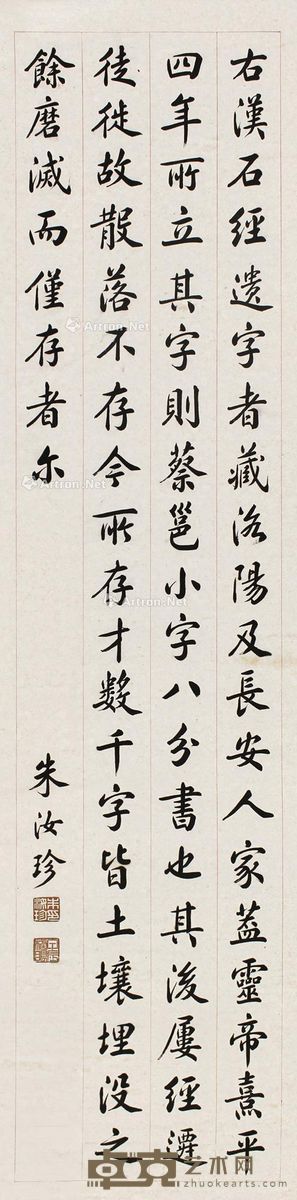 右漢石經遺字者藏洛陽及長安人家蓋靈帝熹平
四年所立其字則蔡邕小字八分書也其後屢經遷
徒徙故散落不存今所存才數千字皆土壤埋没之
餘磨滅而僅存者尔
朱汝珍
Artron.Net
Artron.Net
Artron.Net
Artron.Net
卓克艺术网
zhuokearts.com